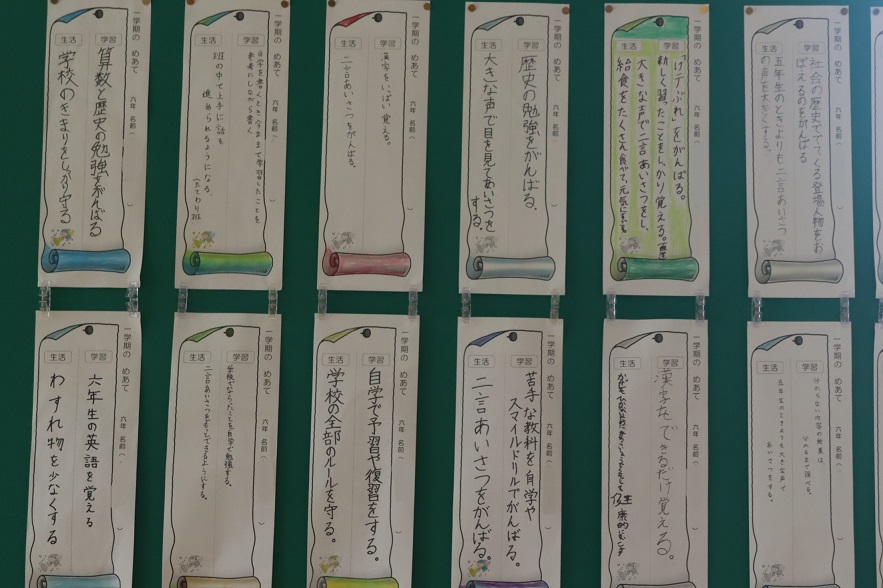 一学期の めあて
六年 名前(
)
学習
算数と歴史の勉強をがんばる
生活
学校のきまりをしっかり守る
一学期の めあて
六年 名前(
)
学習
自学を書くとき今ままで学習したことを
参考にしながら書く
生活
班の中で上手に話を
進められるようになる。
(たてわり班
一学期の めあて
六年 名前(
)
学習
漢字をいっぱい覚える。
生活
二言あいさつをがんばる。
一学期の めあて
六年 名前(
)
学習
歴史の勉強をがんばる。
生活
大きな声で目を見てあいさつを
する。
一学期の めあて
六年 名前(
)
学習
「けテぶれ」をがんばる。
新しく習ったことをしっかり覚える。
生活
大きな声で二言あいさつをし、
給食をたくさん食べて、元気に
一学期の めあて
六年 名前(
)
学習
社会の歴史ででてくる登場人物をお
ぼえるのをがんばる
生活
五年生のときよりも二言あいさつ
の声を大きくする。
一学期の めあて
六年 名前(
)
学習
六年生の英語を覚える
生活
わすれ物を少なくする
一学期の めあて
六年 名前(
)
学習
学校でならったことを自学で勉強する。
生活
二言あいさつをもっとできるようにする。
一学期の めあて
六年 名前(
)
学習
自学で予習や復習をする。
生活
学校の全部のルールを守る。
一学期の めあて
六年 名前(
)
学習
苦手な教科を自学や
スマイルドリルでがんばる。
生活
二言あいさつをがんばる。
一学期の めあて
六年 名前(
)
学習
漢字をできるだけ覚える。
生活
健康的
一学期の めあて
六年 名前(
)
学習
分からない内容の授業は
分かるまで調べる。
生活
五年生のときよりも大きな声で
あいさつをする。